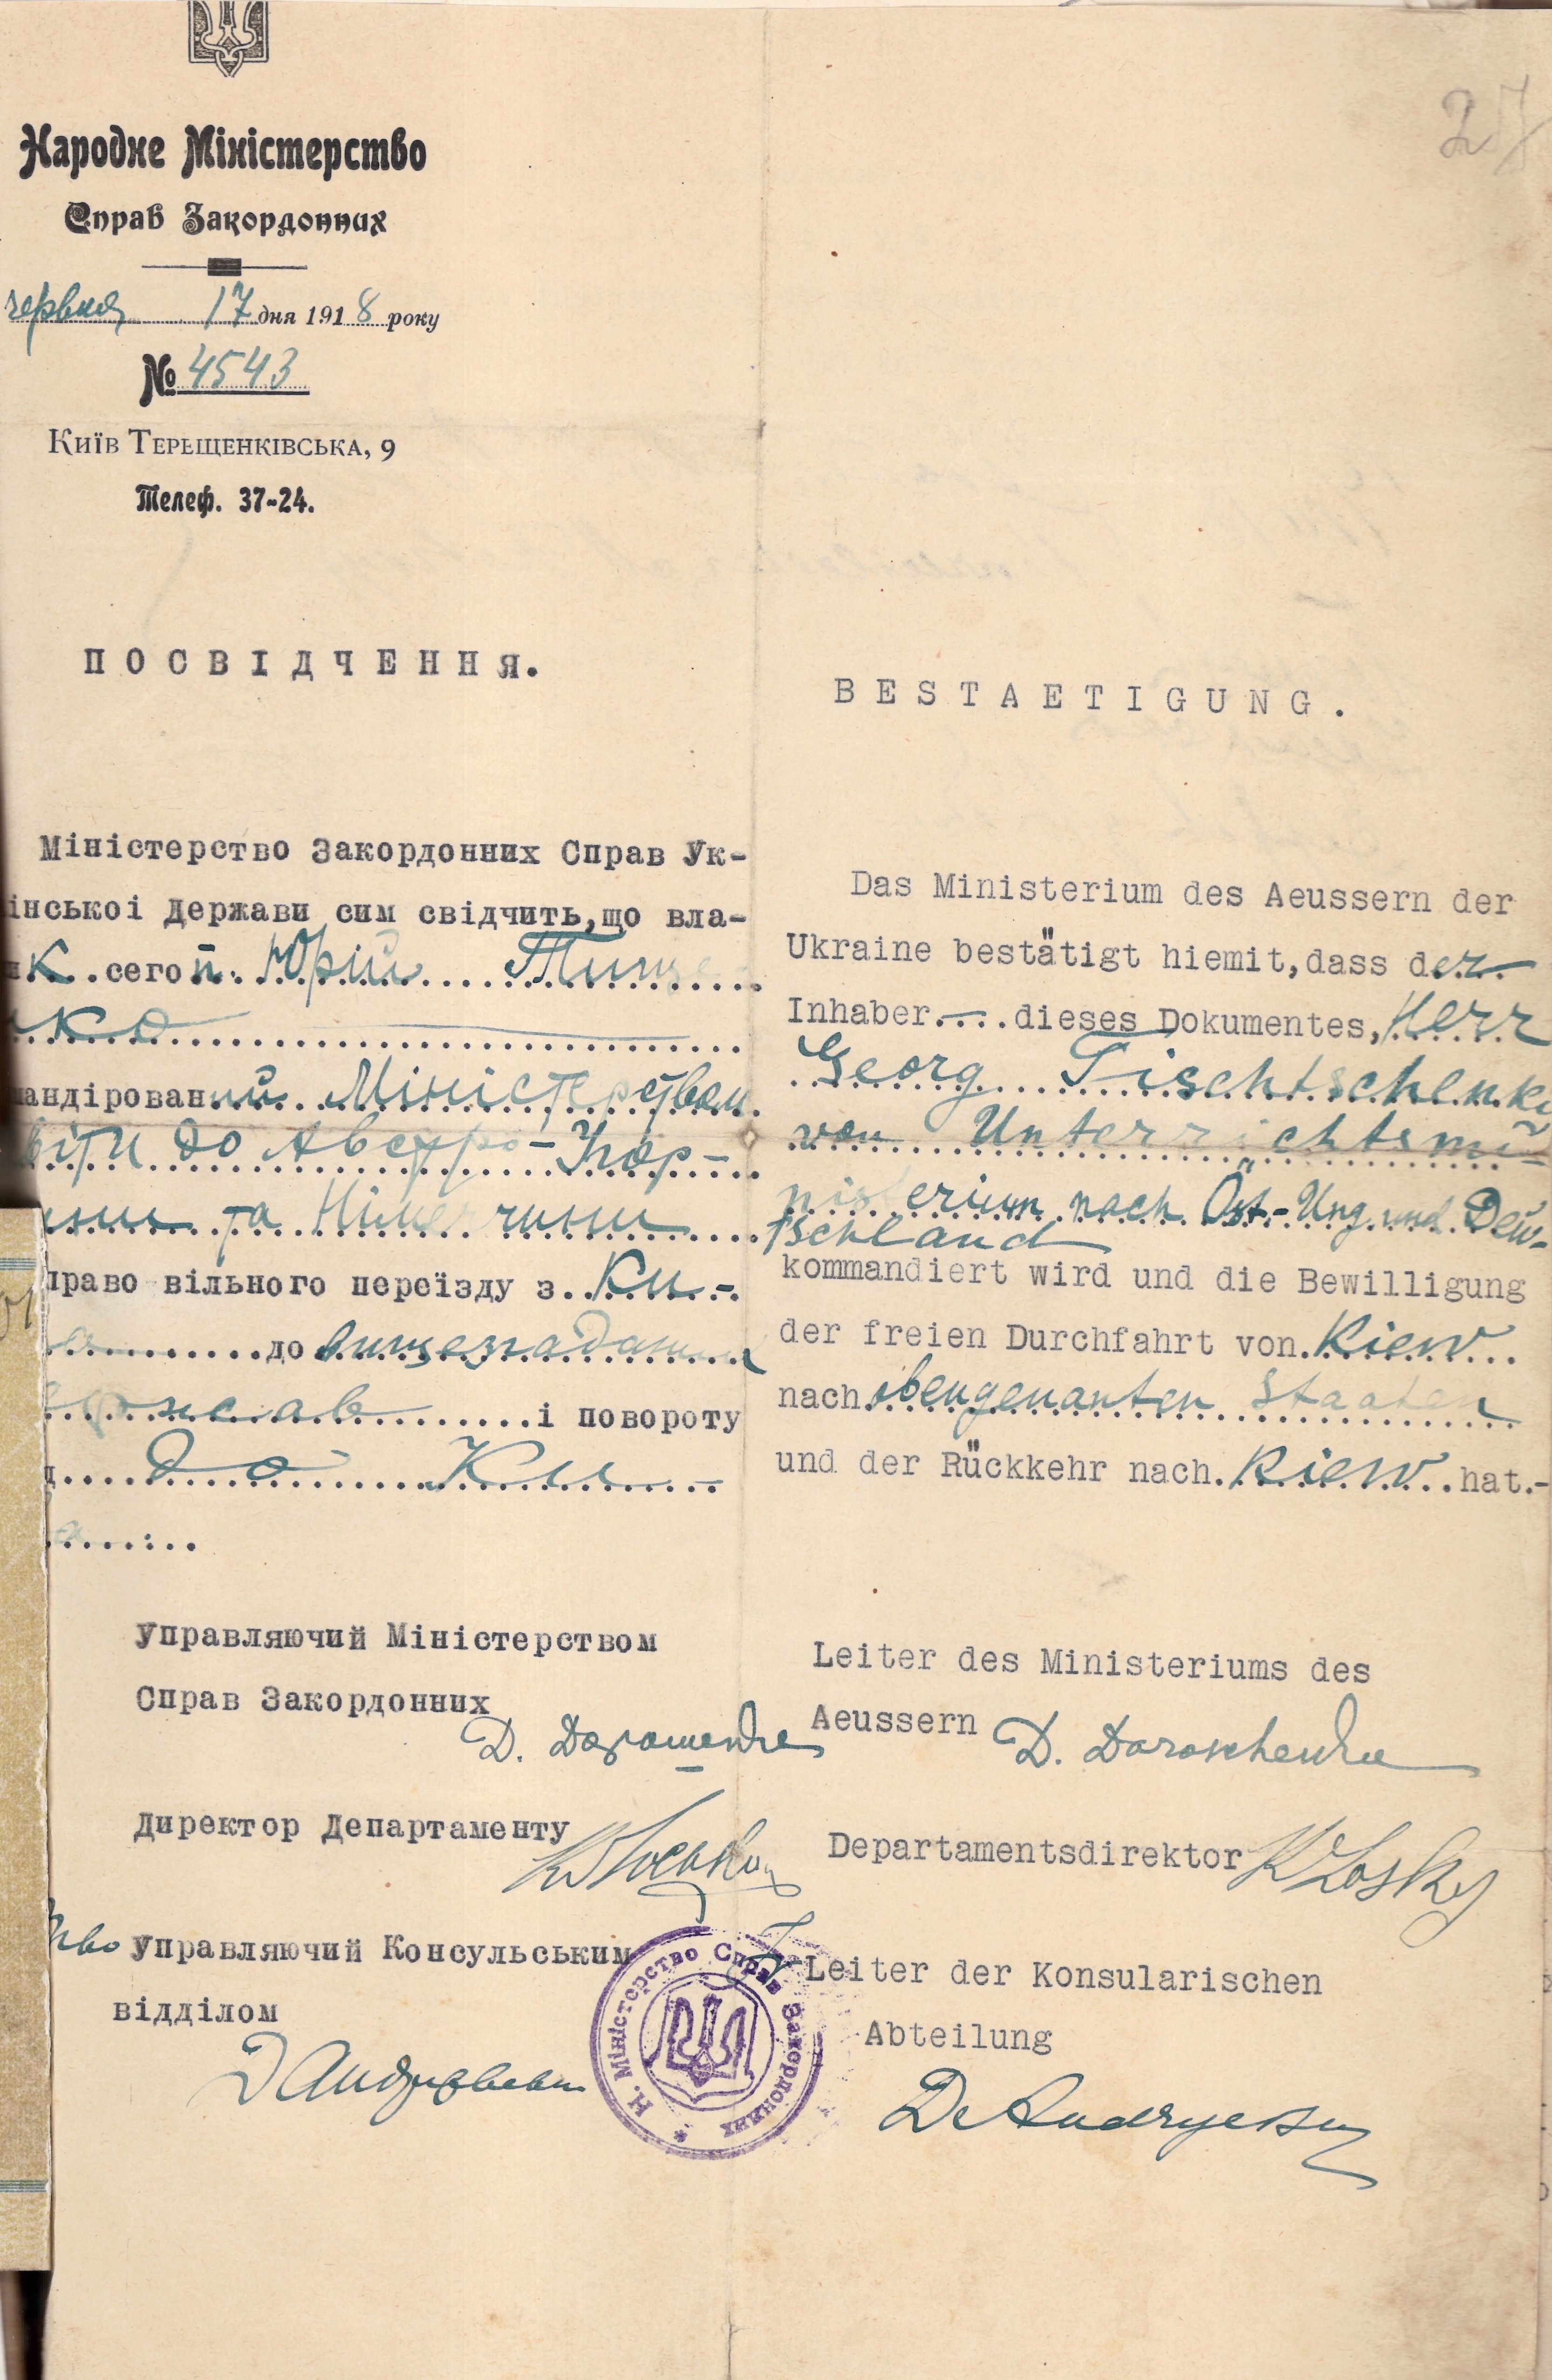 27
Народне Міністерство
Справ Закордонних
червня 17 дня 1918 року
№ 4543
Київ Терещенківська, 9
Телеф. 37-24.
ПОСВІДЧЕННЯ.
Міністерство Закордонних Справ Ук-
інськоі Держави сим свідчить, що вла-
к. сего п. Юрій Тище
ко
андірований Міністерством
віти до Австро-Угор-
та Німеччини
право вільного переїзду з. Ки-
до вищезгаданих
держав і повороту
до Ки-
Управляючий Міністерством
Справ Закордонних
Д. Дорошенко
Директор Департаменту
Управляючий Консульським
відділом
Н. Міністерство Справ Закордонних
BESTAETIGUNG.
Das Ministerium des Aeussern der
Ukraine bestätigt hiemit, dass der
Inhaber dieses Dokumentes, Herr
Georg Tischtschenko
von Unterrichtsmi-
nisterium nach Öst.-Ung. und Deu-
tschland
kommandiert wird und die Bewilligung
der freien Durchfahrt von Kiew
nach obengenanten Staaten
und der Rückkehr nach Kiew hat.-
Leiter des Ministeriums des
Aeussern D. Doroschenko
Departamentsdirektor K Losky
Leiter der Konsularischen
Abteilung